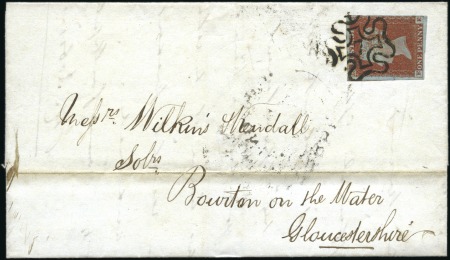 ONE PENNY
Messrs Wilkins Kendall
Solrs
Bourton on the Water
Gloucestershire